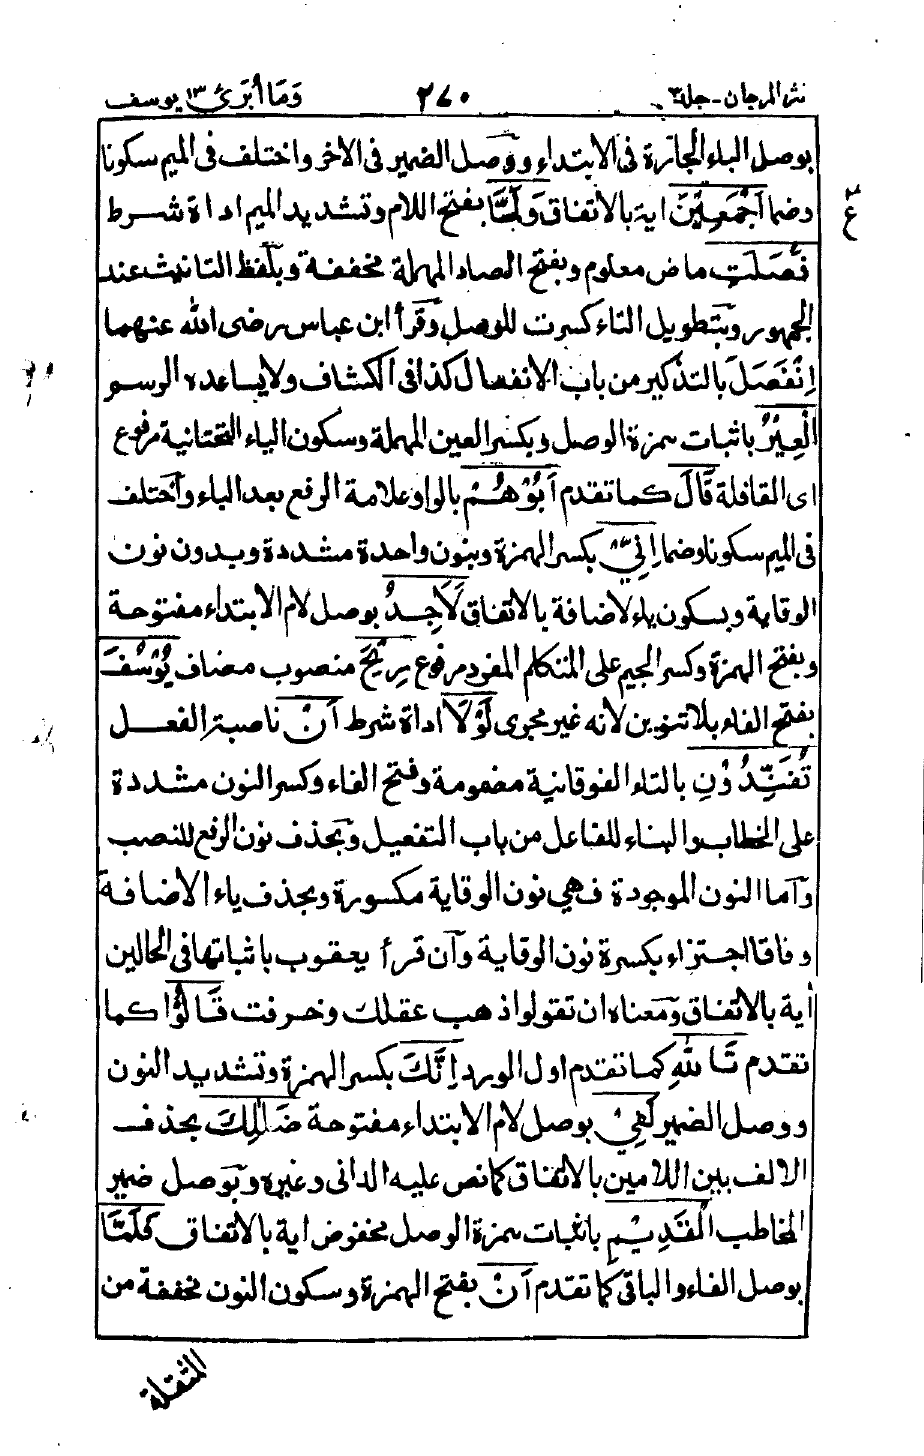 نثر المرجان - جلد ٣ ٢٧٠ وَمَا أُبَرِّئُ ١٣ يوسف
بوصل الباء الجارة فى الابتداء ووصل الضمير فى الاخر واختلف فى الميم سكونا
وضما اَجْمَعِيْنَ اية بالاتفاق وَلَمَّا بفتح اللام وتشديد الميم اداة شرط
فَصَلَتِ ماض معلوم وبفتح الصاد المهملة مخففة وبلفظ التانيث عند
الجمهور وبتطويل التاء كسرت للوصل وقرأ ابن عباس رضى الله عنهما
اِنْفَصَلَ بالتذكير من باب الانفصال كذا فى الكشاف ولا يساعده الرسم
الْعِيْرُ باثبات همزة الوصل وبكسر العين المهملة وسكون الياء التحتانية مرفوع
اى القافلة قَالَ كما تقدم اَبُوْهُمْ بالواو علامة الرفع بعد الباء واختلف
فى الميم سكونا وضما اِنِّيْ بكسر الهمزة وبنون واحدة مشددة وبدون نون
الوقاية وبسكون ياء لاضافة بالاتفاق لَاَجِدُ بوصل لام الابتداء مفتوحة
وبفتح الهمزة وكسر الجيم على المتكلم المفرد مرفوع رِيْحَ منصوب مضاف يُوْسُفَ
بفتح الفاء بلا تنوين لانه غير مجرى لَوْلَا اداة شرط اَنْ ناصبة الفعل
تُفَنِّدُوْنِ بالتاء الفوقانية مضمومة وفتح الفاء وكسر النون مشددة
على الخطاب والبناء للفاعل من باب التفعيل وبحذف نون الرفع للنصب
واما النون الموجودة فهي نون الوقاية مكسورة وبحذف ياء الاضافة
وفاقا اجتزاء بكسرة نون الوقاية وان قرأ يعقوب باثباتها فى الحالين
أية بالاتفاق ومعناه ان تقولوا ذهب عقلك وخرفت قَالُوْا كما
تقدم تَاللّٰهِ كما تقدم اول الورد اِنَّكَ بكسر الهمزة وتشديد النون
ووصل الضمير لَفِيْ بوصل لام الابتداء مفتوحة ضَلٰلِكَ بحذف
الالف بين اللامين بالاتفاق كما نص عليه الدانى وغيره وبوصل ضمير
المخاطب الْقَدِيْمِ باثبات همزة الوصل مخفوض اية بالاتفاق فَلَمَّا
بوصل الفاء والباقى كما تقدم اَنْ بفتح الهمزة وسكون النون مخففة من
المثقلة